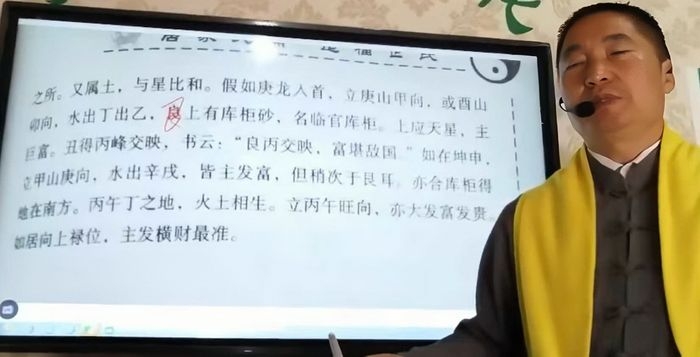 之所。又属土，与星比和。假如庚龙入首，立庚山甲向，或酉山
卯向，水出丁出乙，良上有库柜砂，名临官库柜。上应天星，主
巨富。丑得丙峰交映，书云：“良丙交映，富堪敌国。”如在坤申，
立甲山庚向，水出辛戌，皆主发富，但稍次于艮耳。亦合库柜得
地在南方。丙午丁之地，火上相生。立丙午旺向，亦大发富发贵。
如居向上禄位，主发横财最准。